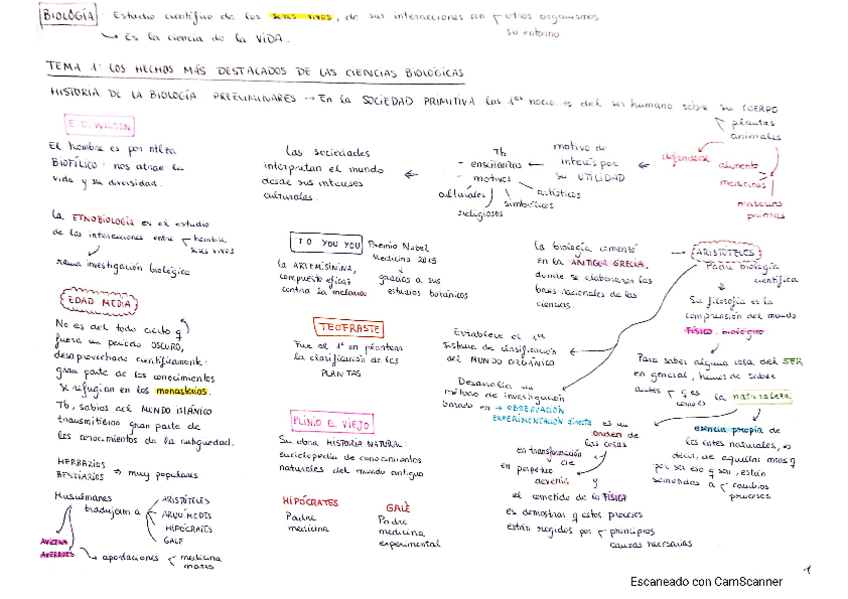 BIOLOGÍA Estudio científico de los seres vivos, de sus interacciones con otros organismos
su entorno
Es la ciencia de la VIDA.
TEMA 1: LOS HECHOS MÁS DESTACADOS DE LAS CIENCIAS BIOLÓGICAS
HISTORIA DE LA BIOLOGÍA PREELIMINARES → En la SOCIEDAD PRIMITIVA las 1ᵃˢ del ser humano sobre su CUERPO
plantas
animales
E.O. WILSON
El hombre es por
BIOFÍLICO: nos atrae la
vida y su diversidad.
Las sociedades
interpretan el mundo
desde sus intereses
culturales.
Tb
- enseñanzas
- motivos
culturales
religiosos
simbólicos
artísticos
motivo de
interés por
su UTILIDAD
defenderse
alimento
medicinas
materias
primas
La ETNOBIOLOGÍA es el estudio
de las interacciones entre hombre
seres vivos
rema investigación biológica
TO YOU YOU Premio Nobel
Medicina 2015
La ARTEMISININA,
compuesto eficaz
contra la malaria
gracias a sus
estudios botánicos
La biología comenzó
en la ANTIGUA GRECIA,
donde se elaboraron las
bases racionales de las
ciencias.
ARISTÓTELES
Padre biología
científica
Su filosofía es la
comprensión del mundo
FÍSICO - biológico
Para saber alguna cosa del SER
en general, hemos de saber
antes q es la naturaleza
como es
EDAD MEDIA
No es del todo cierto q
fuera un período OSCURO,
desaprovechado científicamente:
gran parte de los conocimientos
se refugian en los monasterios.
Tb, sabios del MUNDO ISLÁMICO
transmitieron gran parte de
los conocimientos de la antigüedad.
HERBARIOS
BESTIARIOS ⇒ muy populares
Musulmanes
traducían a
ARISTÓTELES
ARQUÍMEDES
HIPÓCRATES
GALE
AVICENA
AVERROES
aportaciones medicina
TEOFRASTE
Fue el 1º en plantear
la clasificación de las
PLANTAS
PLINIO EL VIEJO
Su obra HISTORIA NATURAL:
enciclopedia de conocimientos
naturales del mundo antiguo
HIPÓCRATES
Padre
medicina
GALÈ
Padre
medicina
experimental
Establece el 1ᵉʳ
sistema de clasificación
del MUNDO ORGÁNICO
Desarrolla un
método de investigación
basado en → OBSERVACIÓN
EXPERIMENTACIÓN directa
es un
ORDEN de
las cosas
en transformación
en perpetuo
devenir y
el cometido de la FÍSICA
es demostrar q estos procesos
están regidos por principios
causas necesarias
esencia propia de
los entes naturales, es
decir, de aquellos entes q
por ser eso q son, están
sometidos a cambios
procesos
1
Escaneado con CamScanner